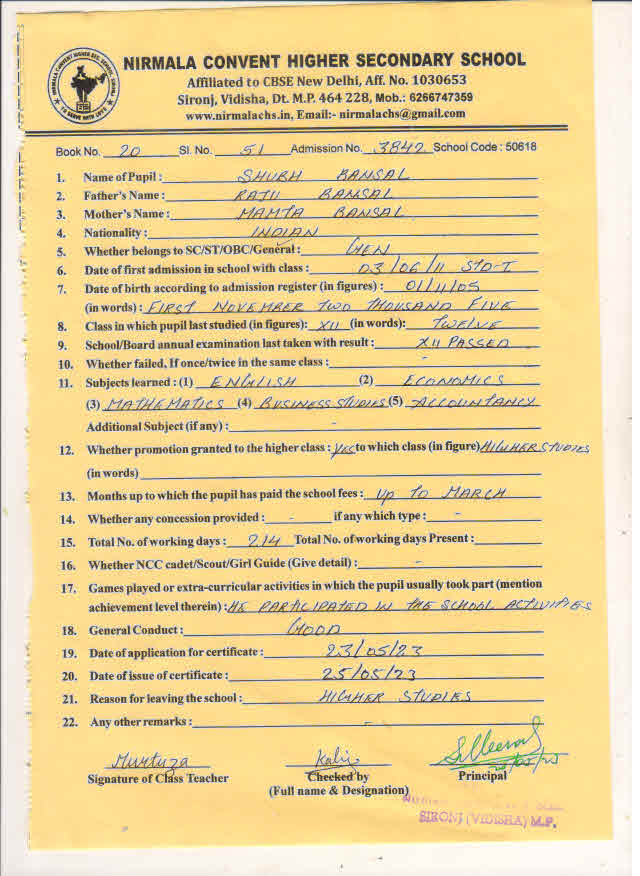 NIRMALA CONVENT HIGHER SECONDARY SCHOOL
Affiliated to CBSE New Delhi, Aff. No. 1030653
Sironj, Vidisha, Dt. M.P. 464 228, Mob.: 6266747359
www.nirmalachs.in, Email:- nirmalachs@gmail.com
Book No. 20 Sl. No. 51 Admission No. 3842 School Code : 50618
1. Name of Pupil : SHUBH BANSAL
2. Father's Name : RAJU BANSAL
3. Mother's Name : MAMTA BANSAL
4. Nationality : INDIAN
5. Whether belongs to SC/ST/OBC/General : GEN
6. Date of first admission in school with class : 03/06/11 STD-I
7. Date of birth according to admission register (in figures) : 01/11/05
(in words) : FIRST NOVEMBER TWO THOUSAND FIVE
8. Class in which pupil last studied (in figures): XII (in words): TWELVE
9. School/Board annual examination last taken with result : XII PASSED
10. Whether failed, If once/twice in the same class : -
11. Subjects learned : (1) ENGLISH (2) ECONOMICS
(3) MATHEMATICS (4) BUSINESS STUDIES (5) ACCOUNTANCY
Additional Subject (if any) : -
12. Whether promotion granted to the higher class : YES to which class (in figure) HIGHER STUDIES
(in words)
13. Months up to which the pupil has paid the school fees : UP TO MARCH
14. Whether any concession provided : - if any which type : -
15. Total No. of working days : 214 Total No. of working days Present :
16. Whether NCC cadet/Scout/Girl Guide (Give detail) : -
17. Games played or extra-curricular activities in which the pupil usually took part (mention
achievement level therein) : HE PARTICIPATED IN THE SCHOOL ACTIVITIES
18. General Conduct : GOOD
19. Date of application for certificate : 23/05/23
20. Date of issue of certificate : 25/05/23
21. Reason for leaving the school : HIGHER STUDIES
22. Any other remarks : -
Murtuza
Signature of Class Teacher Checked by Principal
(Full name & Designation)
SIRONJ (VIDISHA) M.P.